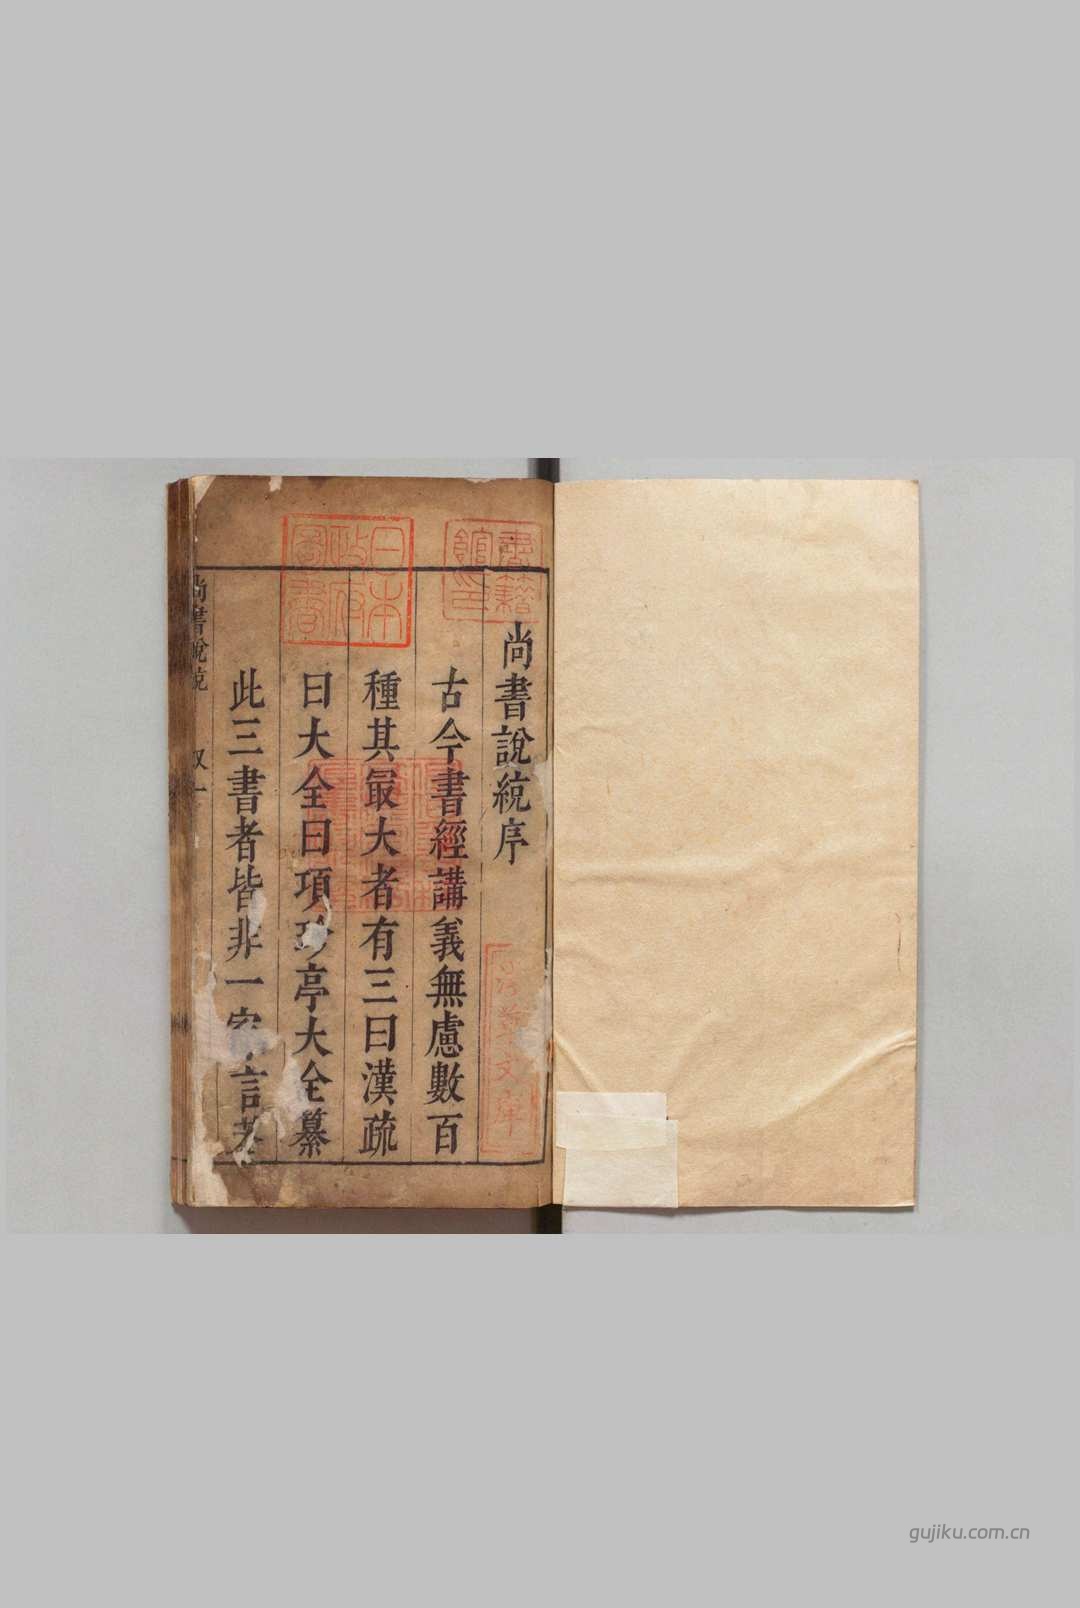 尚書說統序
古今書經講義無慮數百
種其最大者有三曰漢疏
曰大全曰項珍亭大全纂
此三書者皆非一家言若
尚書說統
日本
政府
圖書
書籍
館印
文庫
gujiku.com.cn